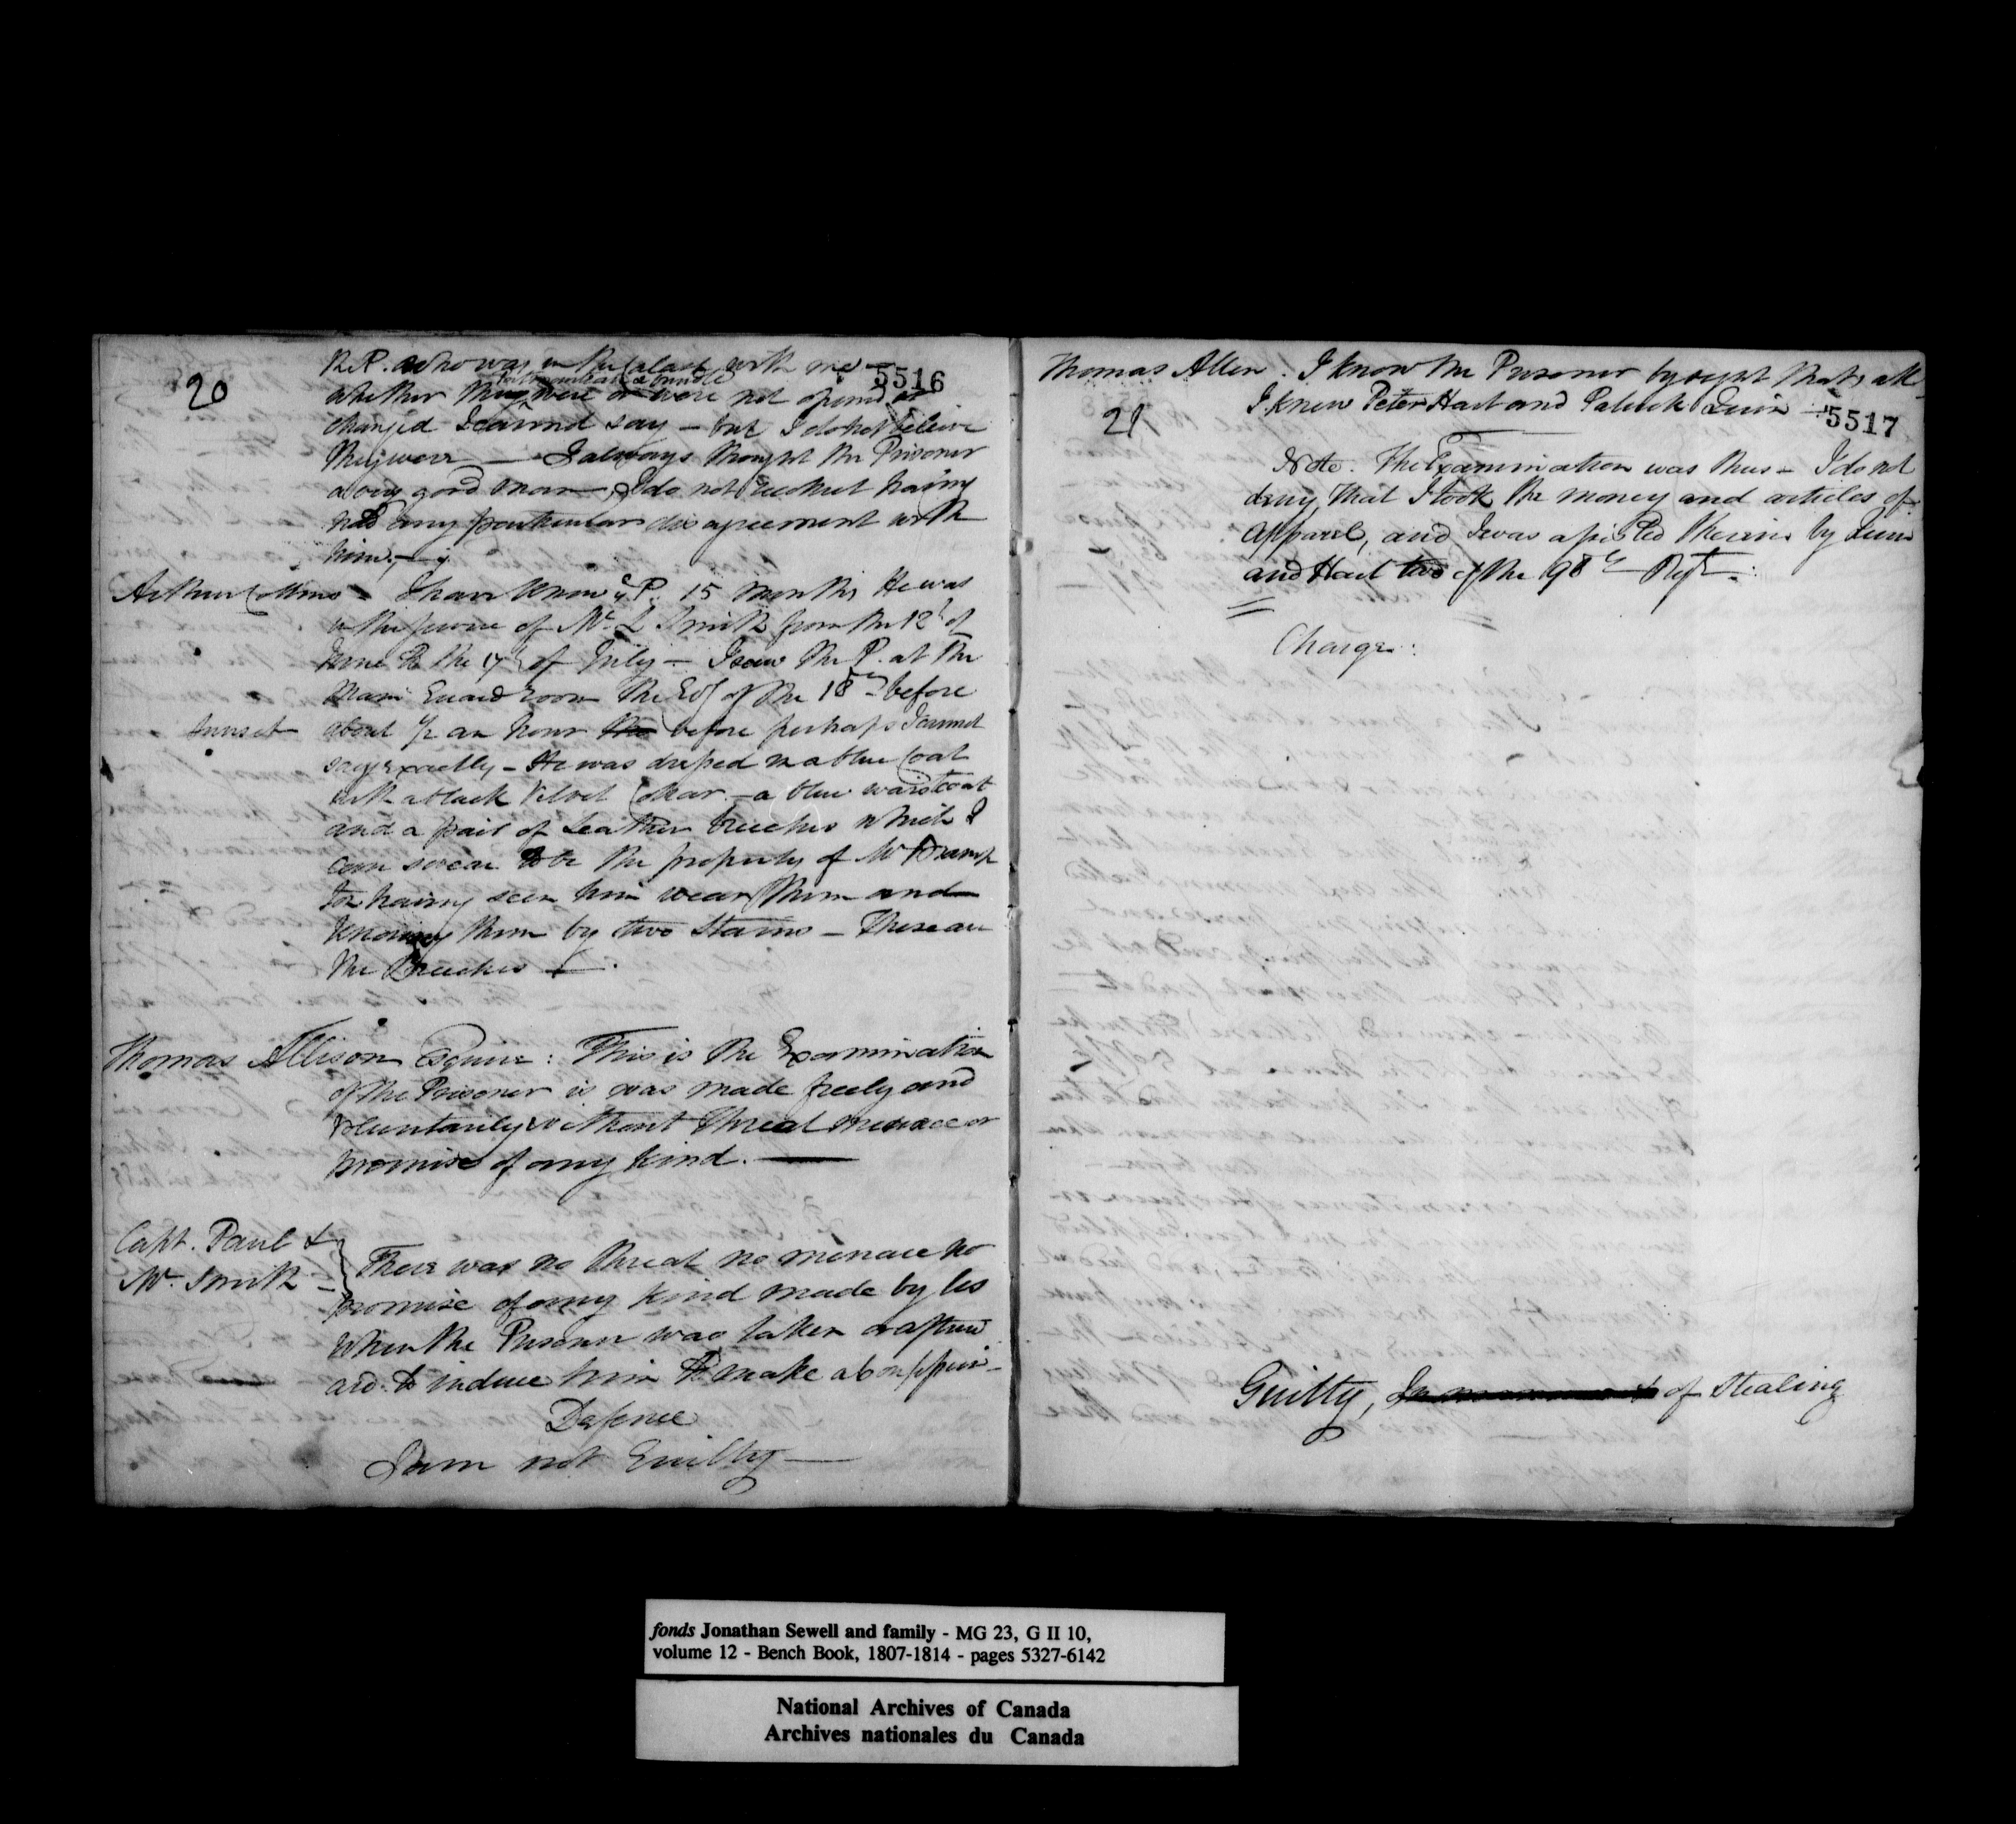 20
5516
P. who was in the calash with me
whether they were or were not opened or
changed I cannot say – but I do not believe
they were — I always thought the Prisoner
a very good man – I do not recollect having
had any particular disagreement with
him –
Arthur Collins – I have known P. 15 months He was
in the service of Mr. L Smith from the 12th of
June to the 17th of July – I saw the P. at the
Main Guard room the Evg of the 18th – before
Sunset about ½ an hour before perhaps I cannot
say exactly – He was dressed in a blue Coat
with a black Velvet Collar – a blue waistcoat
and a pair of Leather breeches which I
can swear to be the property of Mr
for having seen him wear them and
knowing them by two Stains – These are
the Breeches —.
Thomas Allison Esquire: This is the Examination
of the Prisoner is was made freely and
Voluntarily without Threat menace or
promise of any kind. —
Capt. Paul &
Mr. Smith –
There was no threat no menace no
promise of any kind made by us
when the Prisoner was taken or afterw
ard to induce him to make a confession –
Defence
I am not Guilty —
Thomas Allen. I know the Prisoner by sight that's all
21
I knew Peter Hart and Patrick Quin –
5517
Note. The Examination was thus – I do not
deny that I took the money and articles of
apparel, and I was assisted therein by Quin
and Hart two of the 98th Regt.
Charge:
Guilty, of Stealing
fonds Jonathan Sewell and family - MG 23, G II 10,
volume 12 - Bench Book, 1807-1814 - pages 5327-6142
National Archives of Canada
Archives nationales du Canada